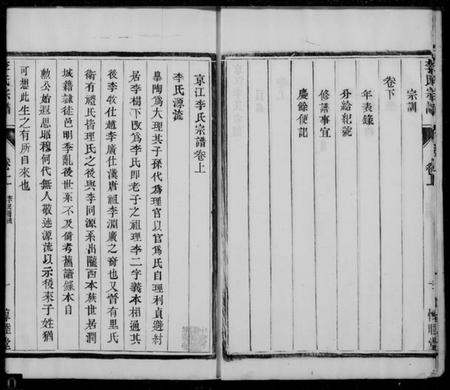 宗訓
卷下
年表錄
分給紀號
修譜事宜
慶餘便記
京江李氏宗譜卷上
李氏源流
皋陶為大理其子孫代為理官以官為氏自理利貞避紂
居李樹下改為李氏即老子之祖理李二字義本相通其
後李牧仕趙李廣仕漢唐祖李淵廣之裔也又晉有里氏
衛有禮氏皆理氏之後與李同源系出隴西本族世居潤
城籍隸徒邑明季亂後世系不及備考舊譜繇本自
勲公始遐思耶穆何代無人敬述源流以示後來子姓猶
可想此生之有所自來也